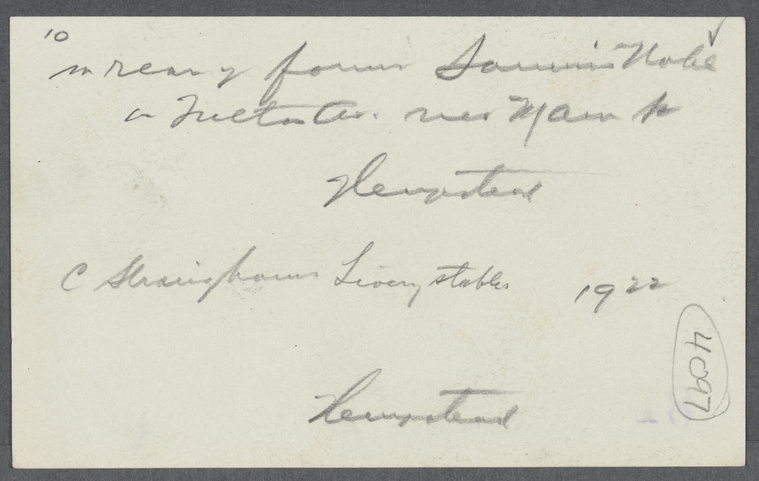 10
in rear of former
Fulton Av. near Main St
Hempstead
C Livery stables 1922
4097
Hempstead